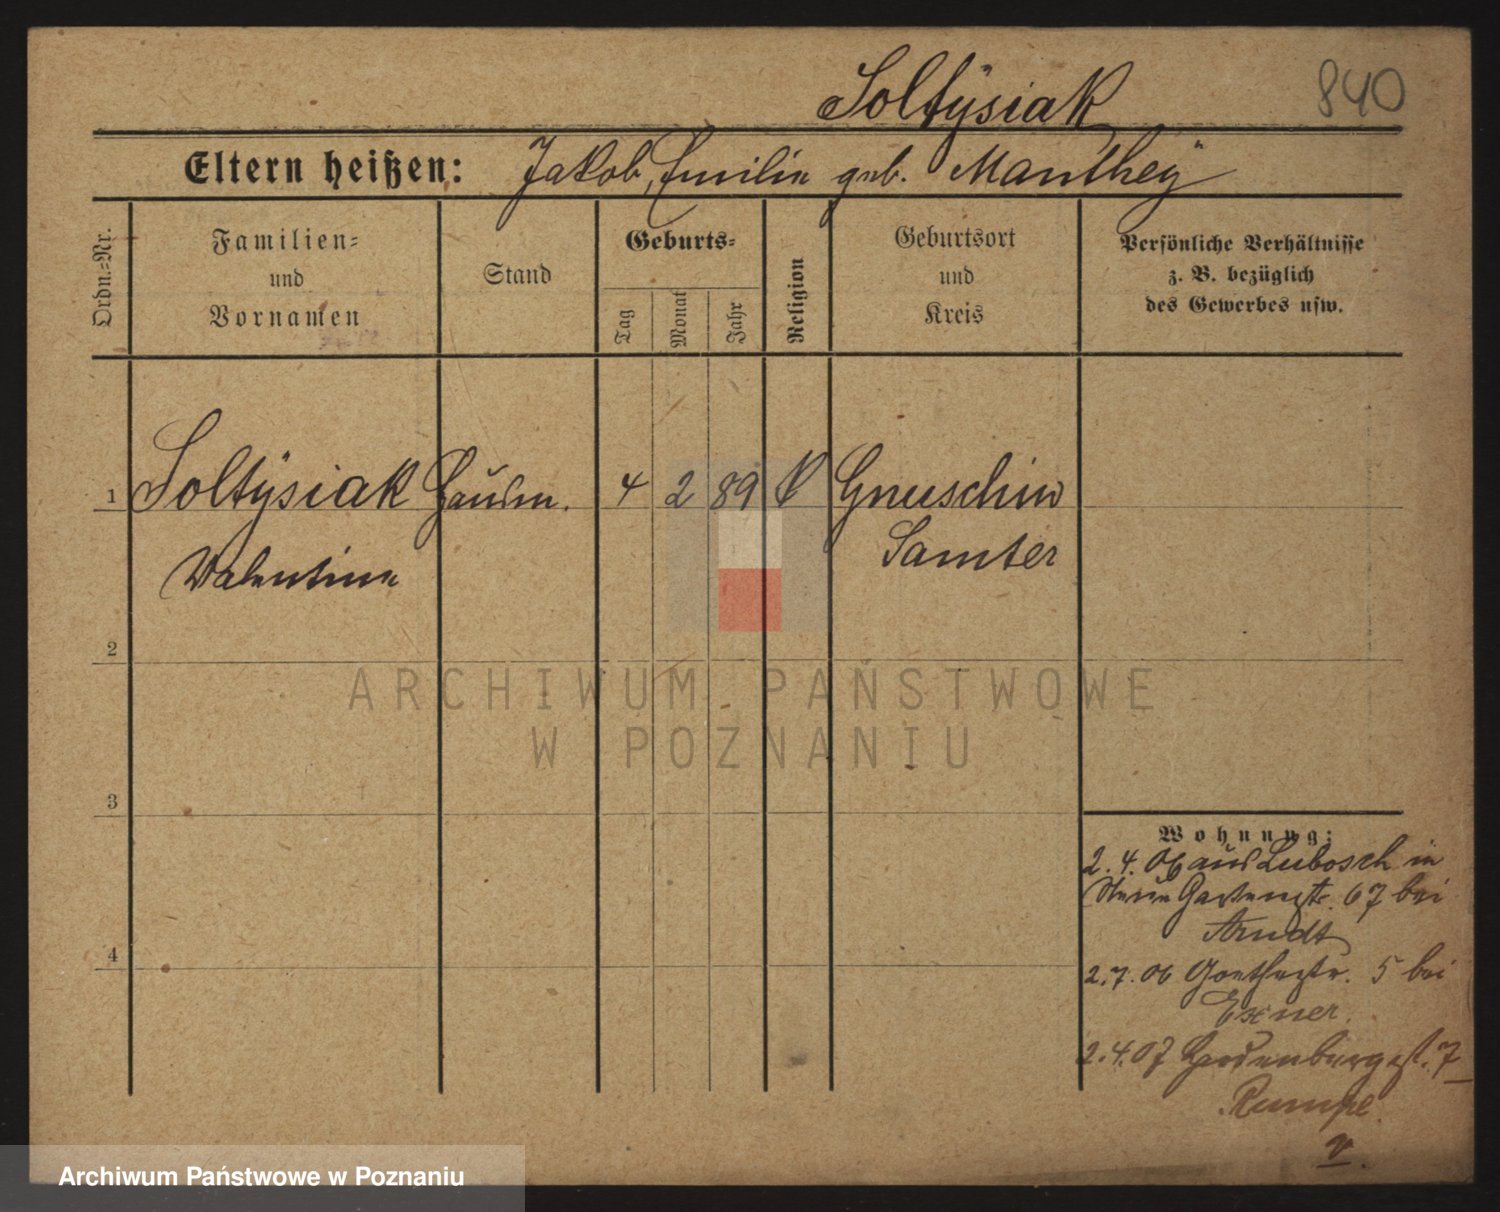 Soltÿsiak
840
Eltern heißen: Jakob, Emilie geb. Manthey
Ordn.=Nr.
Familien=
und
Vornamen
Stand
Geburts=
Tag
Monat
Jahr
Religion
Geburtsort
und
Kreis
Persönliche Verhältnisse
z. B. bezüglich
des Gewerbes usw.
1 Soltÿsiak Hausm. 4 2 89 K Gnuschin
Valentine Samter
2
3
4
Wohnung:
2.4.06 aus Lubosch in
Neue Gartenstr. 67 bei
Arndt
2.7.06 Goethestr. 5 bei
Exner.
2.4.07 Hardenbergst. 7
Rumpe
v.
ARCHIWUM PAŃSTWOWE
W POZNANIU
Archiwum Państwowe w Poznaniu